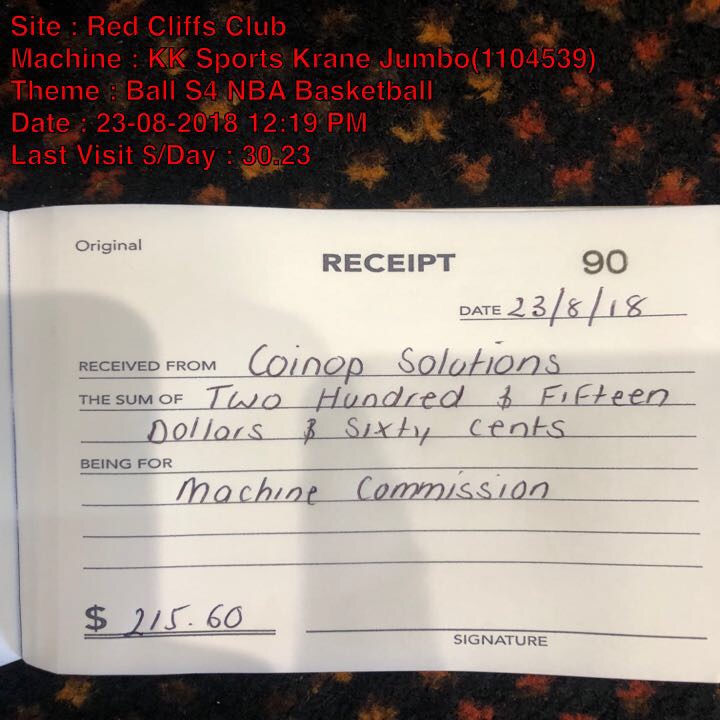 Site : Red Cliffs Club
Machine : KK Sports Krane Jumbo(1104539)
Theme : Ball S4 NBA Basketball
Date : 23-08-2018 12:19 PM
Last Visit $/Day : 30.23
Original
RECEIPT 90
DATE 23/8/18
RECEIVED FROM Coinop Solutions
THE SUM OF Two Hundred & Fifteen
Dollars & Sixty Cents
BEING FOR
Machine Commission
$ 215.60
SIGNATURE